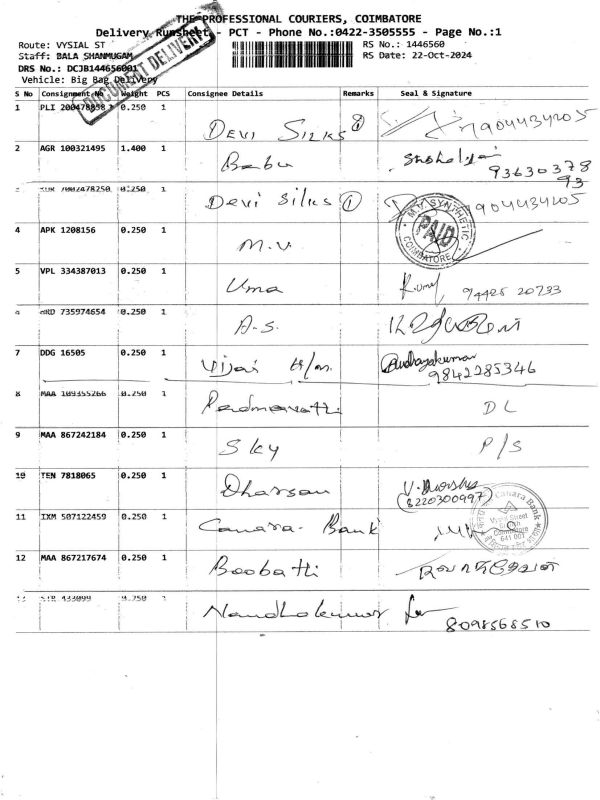 THE PROFESSIONAL COURIERS, COIMBATORE
Delivery Runsheet - PCT - Phone No.:0422-3505555 - Page No.:1
Route: VYSIAL ST RS No.: 1446560
Staff: BALA SHANMUGAM RS Date: 22-Oct-2024
DRS No.: DCJB144656001
Vehicle: Big Bag Delivery
DOCUMENT DELIVERY
S No Consignment No Weight PCS Consignee Details Remarks Seal & Signature
1 PLI 0.250 1 DEVI SILKS 1 9044434205
2 AGR 100321495 1.400 1 Babu 93630378
93
7002478250 0.250 1 Devi Silks 1 9044434205
MY SYNTHETIC PAID COIMBATORE
4 APK 1208156 0.250 1 M.V.
5 VPL 334387013 0.250 1 Uma 94425 20733
735974654 0.250 1 A.S.
7 DDG 16505 0.250 1 Vijai H/m. Audhayakumar
9842285346
8 MAA 109355266 0.250 1 Padmavathi DL
9 MAA 867242184 0.250 1 Sky P/S
10 TEN 7818065 0.250 1 Dharsan
8220300997
11 IXM 507122459 0.250 1 Canara Bank
Canara Bank Vysial Street Coimbatore 641 001
12 MAA 867217674 0.250 1 Boobathi
STR 433099 0.750 Nandhakumar
8098568510